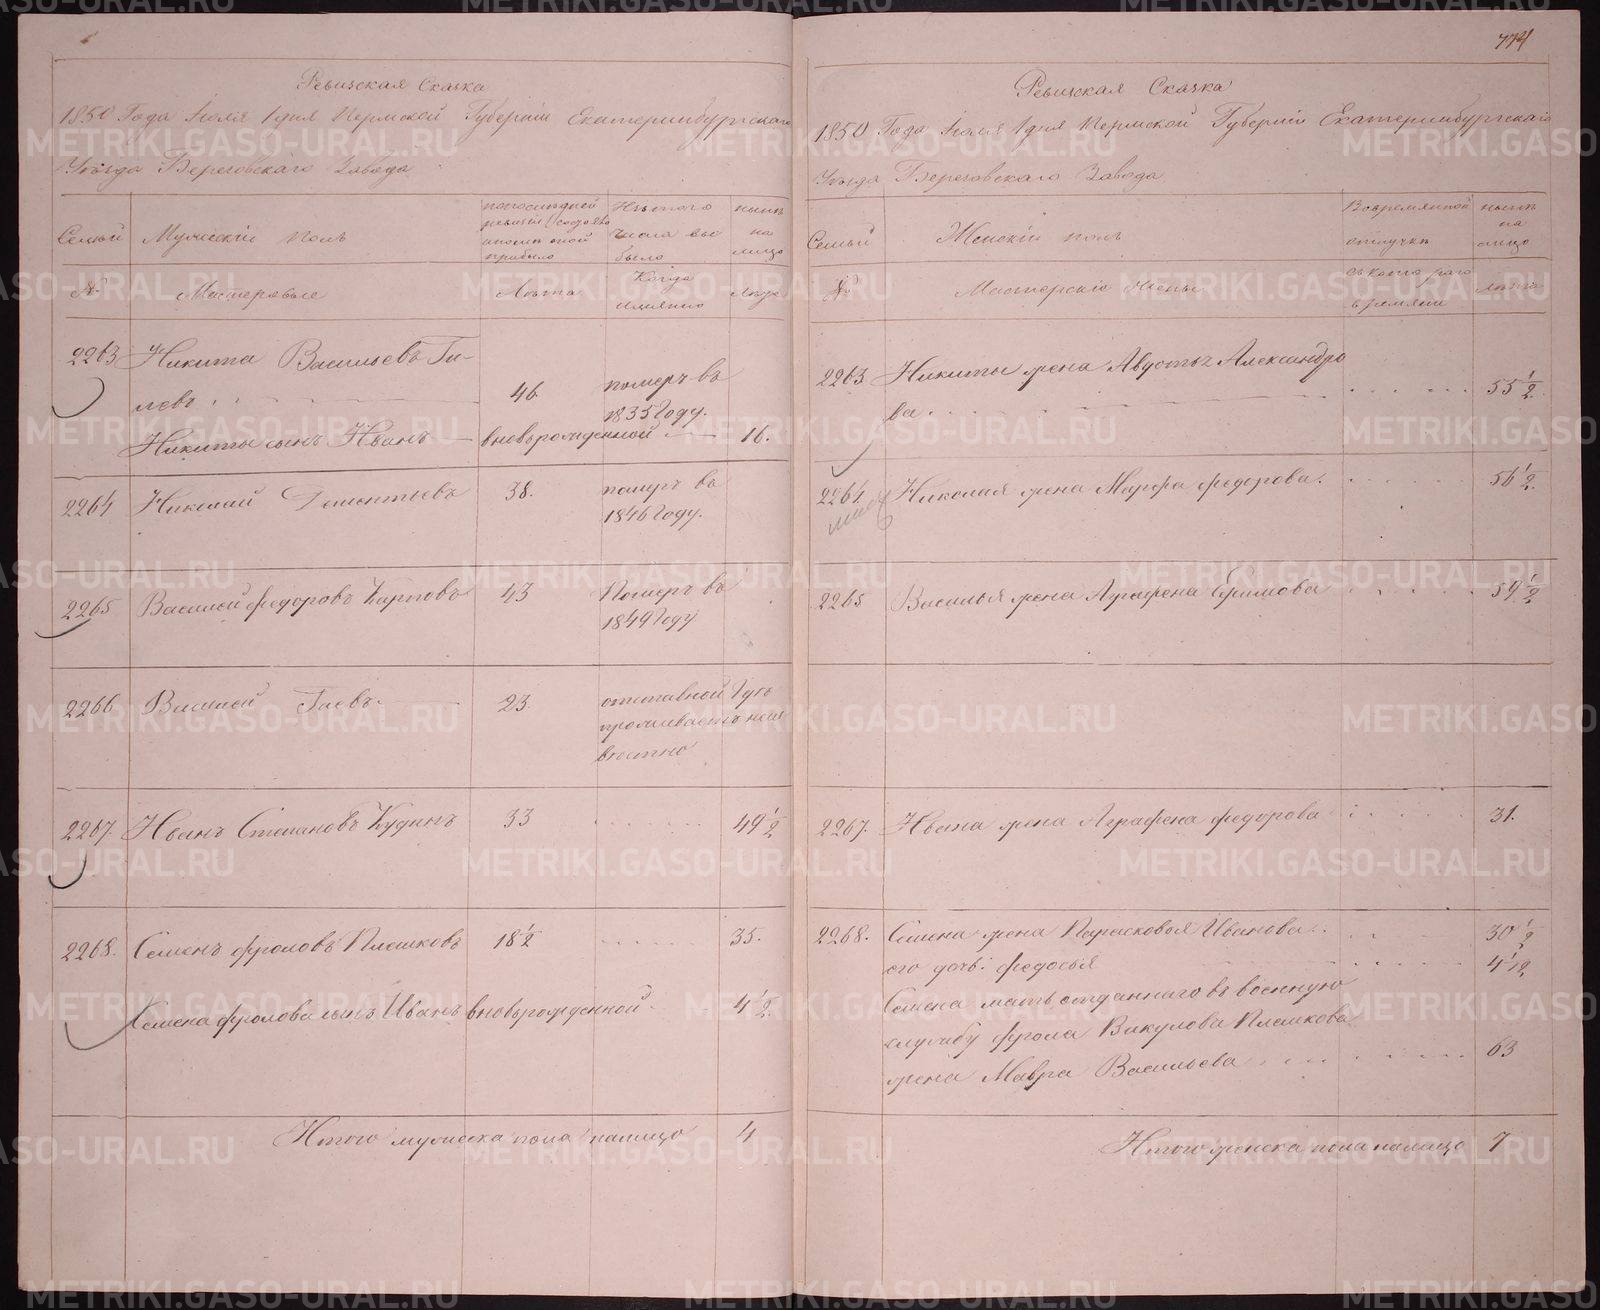 774
Ревизская Сказка
1850 Года Июля 1 дня Пермской Губернии Екатеринбургскаго
Уѣзда Березовскаго Завода
Семьи
Мужескій полъ
по последней ревизіи состояло и после оной прибыло
Изъ того числа выбыло
нынѣ на лицо
№
Мастеровые
Лѣта
Когда именно
Лѣта
2263
Никита Васильевъ
левъ
46.
померъ въ
1835 Году.
Никиты сынъ Иванъ
вновьрожденной
16.
2264
Николай Дементьевъ
38.
померъ въ
1846 Году.
2265
Василей Федоровъ Карповъ
43
Померъ въ
1849 Году
2266
Василей
23.
отставной Гдѣ
проживаетъ неиз
вѣстно
2267.
Иванъ Степановъ Кудинъ
33
49 1/2
2268.
Семенъ Фроловъ Плешковъ
18 1/2
35.
Семена Фролова сынъ Иванъ вновьрожденной
4 1/2
Итого мужеска пола налицо 4
Ревизская Сказка
1850 Года Июля 1 дня Пермской Губернии Екатеринбургскаго
Уѣзда Березовскаго Завода
Семьи
Женскій полъ
Во временной отлучкѣ
нынѣ на лицо
№
Мастерскіе жены
съ котораго времяни
лѣта
2263
Никиты жена Августа Александро
ва
55 1/2
2264
Николая жена Марфа Федорова.
56 1/2
2265
Василья жена Аграфена Ефимова
59 1/2
2267.
Ивана жена Аграфена Федорова
31.
2268.
Семена жена Парасковья Иванова
30 1/2
его дочь: Федосья
4 1/2
Семена мать отданнаго въ военную
службу Фрола Викулова Плешкова
жена Мавра Васильева
63
Итого женска пола налицо 7
METRIKI.GASO-URAL.RU